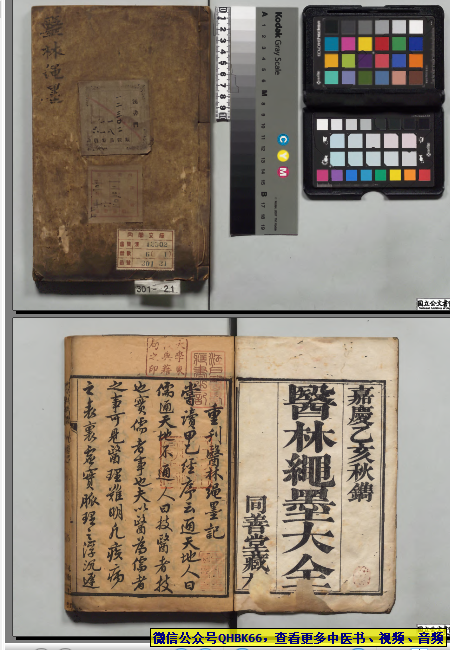 醫林繩墨
301-21
Kodak
Gray Scale
A
M
B
C
Y
M
嘉慶乙亥秋鐫
醫林繩墨大全
同善堂藏
重刊醫林繩墨記
嘗讀甲乙經序云通天地人曰
儒通天地不通人曰技醫者技
也實儒者事也夫以醫為儒者
之事可見醫理難明凡疾病
之表裏虛實脈理之浮沉遲
微信公众号QHBK66，查看更多中医书、视频、音频